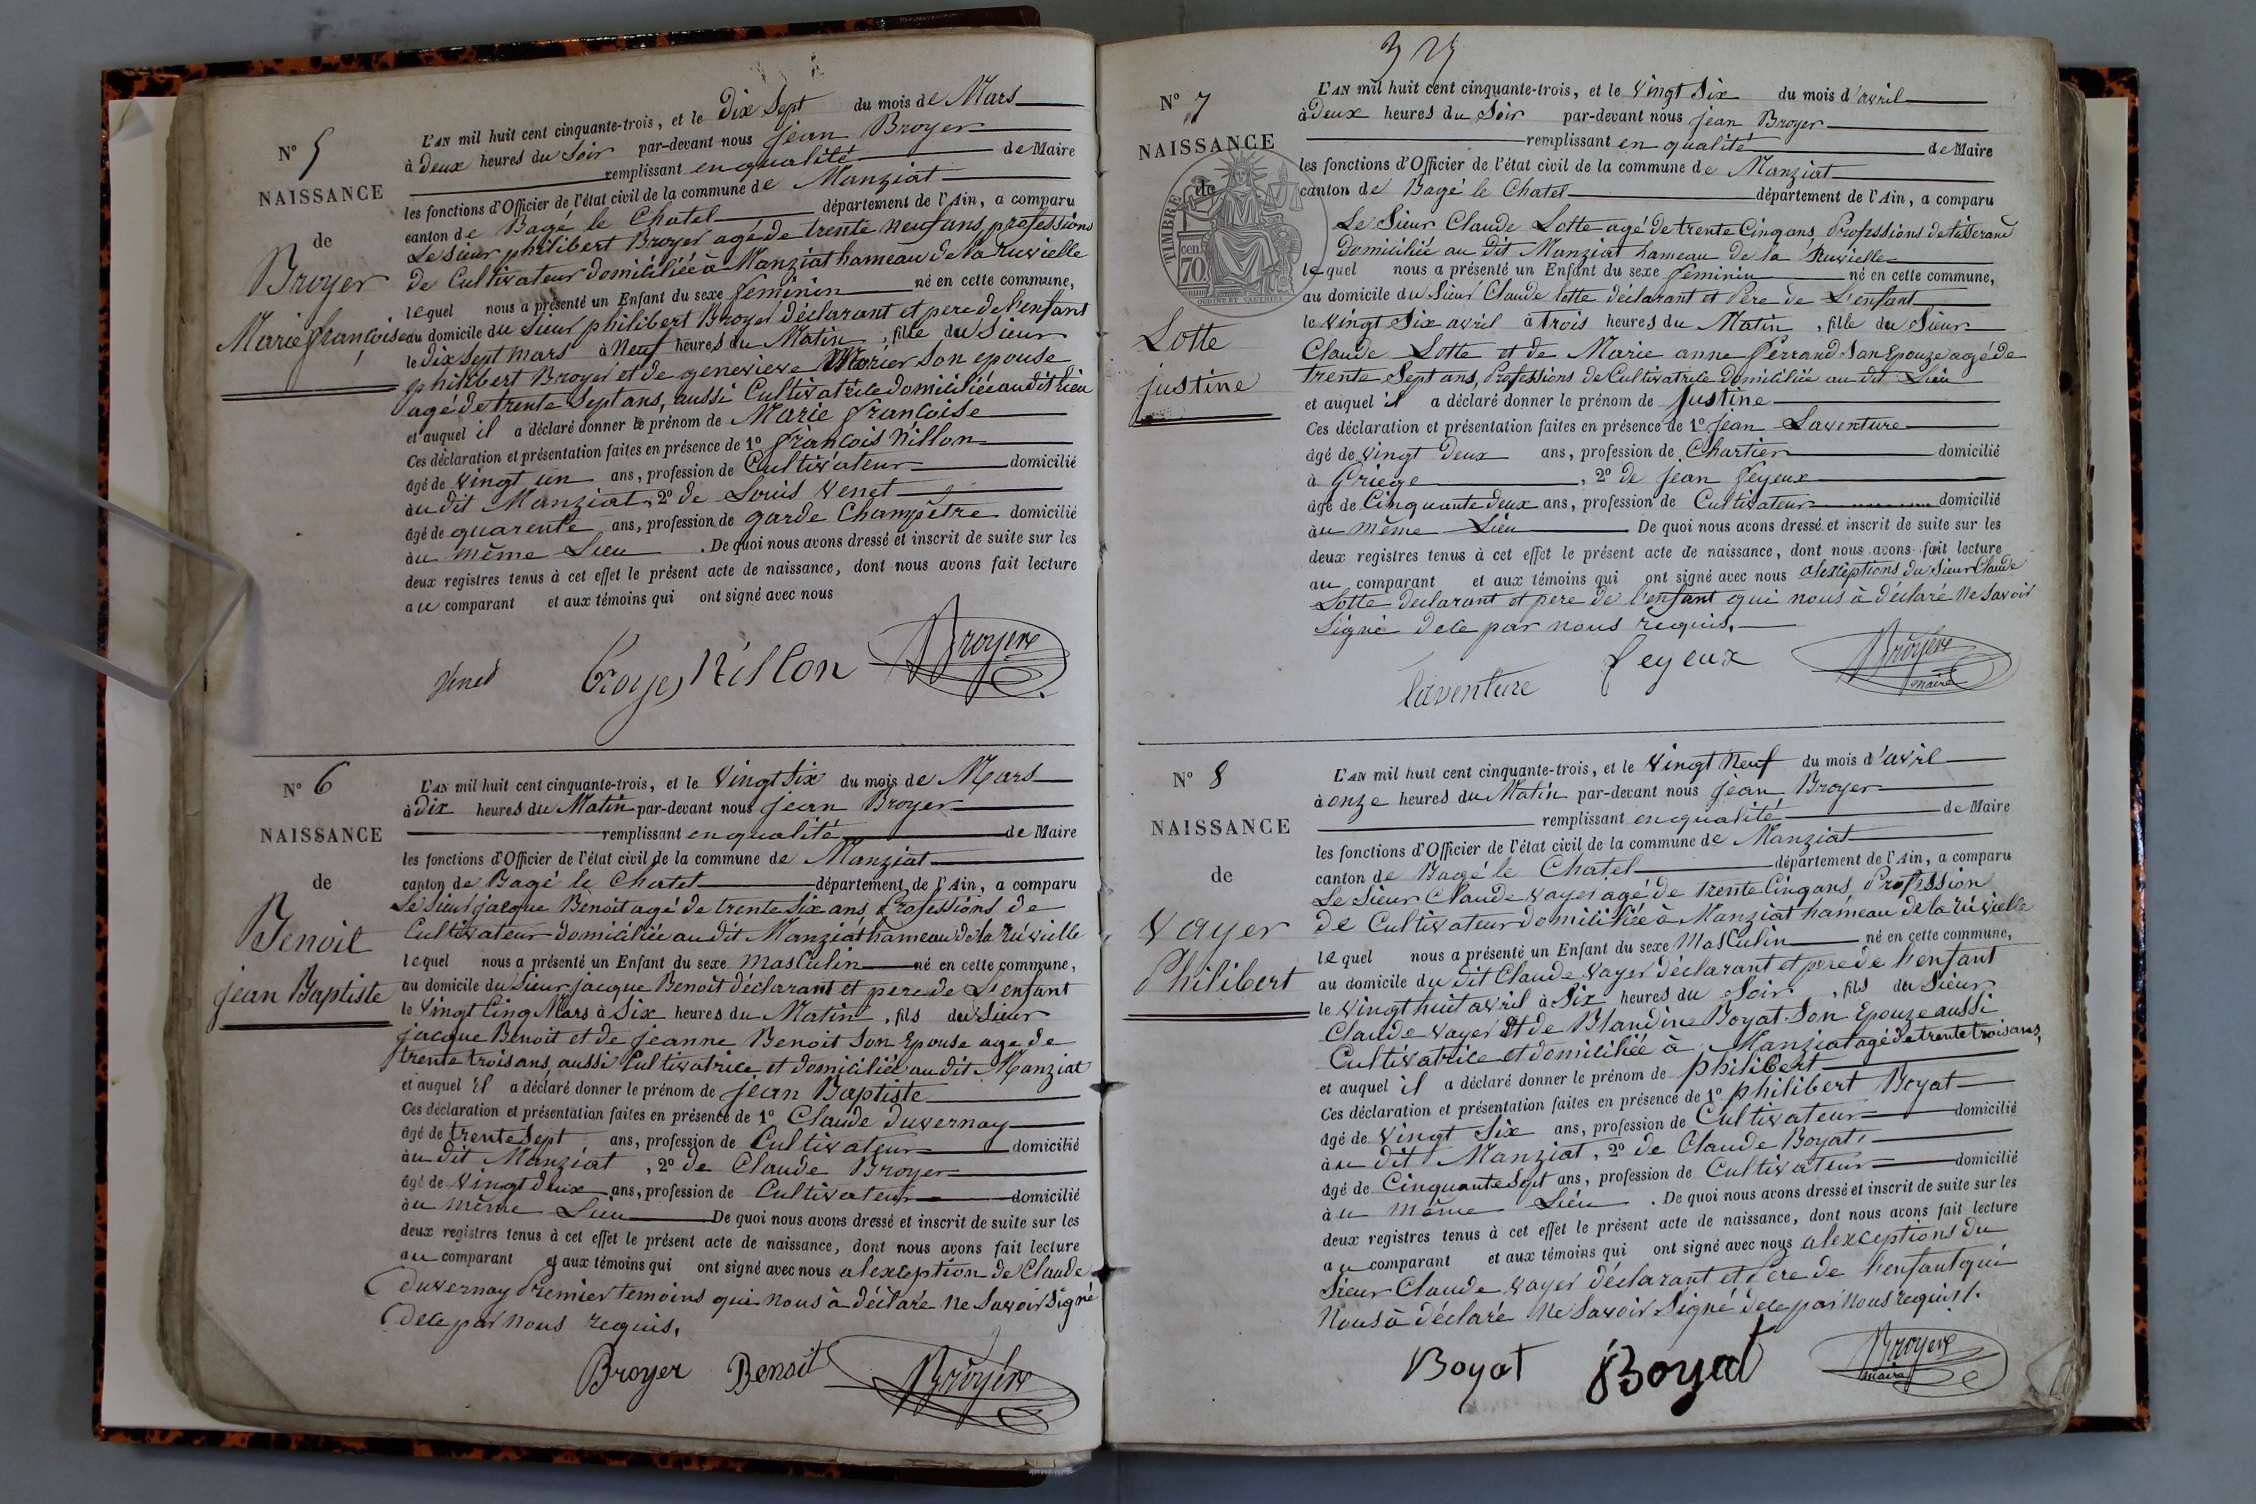 N° 5
NAISSANCE
de
Broyer
Marie françoise
L'AN mil huit cent cinquante-trois, et le Dix Sept du mois de Mars
à Deux heures du Soir par-devant nous jean Broyer
remplissant en qualité de Maire
les fonctions d'Officier de l'état civil de la commune de Manziat
canton de Bagé le Chatel département de l'Ain, a comparu
Le Sieur philibert Broyer agé de trente Neuf ans, professions
de Cultivateur domiciliée à Manziat hameau de la ruvielle
lequel nous a présenté un Enfant du sexe feminin né en cette commune,
au domicile du Sieur philibert Broyer déclarant et pere de l'enfant
le Dix Sept mars à Neuf heures du Matin, fille du Sieur
philibert Broyer et de genevieve Morier son epouse
agé de trente Sept ans, aussi Cultivatrice domiciliée au dit lieu
et auquel il a déclaré donner le prénom de Marie françoise
Ces déclaration et présentation faites en présence de 1° françois Nillon
âgé de vingt un ans, profession de Cultivateur domicilié
àu dit Manziat, 2° de Louis Venet
âgé de quarente ans, profession de garde Champêtre domicilié
àu même Lieu. De quoi nous avons dressé et inscrit de suite sur les
deux registres tenus à cet effet le présent acte de naissance, dont nous avons fait lecture
au comparant et aux témoins qui ont signé avec nous
Venet Broyer Nillon Broyer
N° 6
NAISSANCE
de
Benoit
jean Baptiste
L'AN mil huit cent cinquante-trois, et le Vingt Six du mois de Mars
à Dix heures du Matin par-devant nous jean Broyer
remplissant en qualité de Maire
les fonctions d'Officier de l'état civil de la commune de Manziat
canton de Bagé le Chatel département de l'Ain, a comparu
Le Sieur jacque Benoit agé de trente Six ans, Professions de
Cultivateur domiciliée au dit Manziat hameau de la ruvielle
lequel nous a présenté un Enfant du sexe masculin né en cette commune,
au domicile du Sieur jacque Benoit déclarant et pere de L'enfant
le Vingt Cinq Mars à Six heures du Matin, fils du Sieur
jacque Benoit et de jeanne Benoit son Epouse age de
trente trois ans, aussi Cultivatrice et domiciliée au dit Manziat
et auquel il a déclaré donner le prénom de jean Baptiste
Ces déclaration et présentation faites en présence de 1° Claude Duvernay
âgé de trente Sept ans, profession de Cultivateur domicilié
àu dit Manziat, 2° de Claude Broyer
âgé de Vingt deux ans, profession de Cultivateur domicilié
àu même Lieu De quoi nous avons dressé et inscrit de suite sur les
deux registres tenus à cet effet le présent acte de naissance, dont nous avons fait lecture
au comparant et aux témoins qui ont signé avec nous alexception de Claude
Duvernay Premier temoins qui nous à déclaré Ne Savoir Signé
De ce par Nous requis.
Broyer Benoit Broyer
3
N° 7
NAISSANCE
de
TIMBRE
cen
70
Lotte
justine
L'AN mil huit cent cinquante-trois, et le Vingt Six du mois d'avril
à Deux heures du Soir par-devant nous jean Broyer
remplissant en qualité de Maire
les fonctions d'Officier de l'état civil de la commune de Manziat
canton de Bagé le Chatel département de l'Ain, a comparu
Le Sieur Claude Lotte agé de trente Cinq ans, Professions de tisserand
Domiciliée au dit Manziat hameau de la Ruvielle
lequel nous a présenté un Enfant du sexe feminin né en cette commune,
au domicile du Sieur Claude lotte déclarant et Pere de L'enfant
le Vingt Six avril à trois heures du Matin, fille du Sieur
Claude Lotte et de Marie anne Perrand Son Epouze agé de
trente Sept ans, Professions de Cultivatrice Domiciliée au dit Lieu
et auquel il a déclaré donner le prénom de Justine
Ces déclaration et présentation faites en présence de 1° jean Laventure
âgé de Vingt Deux ans, profession de Chartier domicilié
à Griege, 2° de jean feyeux
âgé de Cinquante deux ans, profession de Cultivateur domicilié
àu même Lieu De quoi nous avons dressé et inscrit de suite sur les
deux registres tenus à cet effet le présent acte de naissance, dont nous avons fait lecture
au comparant et aux témoins qui ont signé avec nous alexceptions du Sieur Claude
Lotte declarant et pere de l'enfant qui nous à déclaré Ne Savoir
Signé De ce par nous requis.
laventure feyeux Broyer
maire
N° 8
NAISSANCE
de
Vayer
Philibert
L'AN mil huit cent cinquante-trois, et le Vingt Neuf du mois d'avril
à onze heures du Matin par-devant nous jean Broyer
remplissant en qualité de Maire
les fonctions d'Officier de l'état civil de la commune de Manziat
canton de Bagé le Chatel département de l'Ain, a comparu
Le Sieur Claude Vayer agé de trente Cinq ans, Profession
de Cultivateur domiciliée à Manziat hameau de la ruvielle
lequel nous a présenté un Enfant du sexe Masculin né en cette commune,
au domicile du dit Claude Vayer déclarant et pere de l'enfant
le Vingt huit avril à Six heures du Soir, fils du Sieur
Claude Vayer Et de Blandine Boyat Son Epouze aussi
Cultivatrice et domiciliée à Manziat agé de trente trois ans,
et auquel il a déclaré donner le prénom de philibert
Ces déclaration et présentation faites en présence de 1° philibert Boyat
âgé de Vingt Six ans, profession de Cultivateur domicilié
àu dit Manziat, 2° de Claude Boyat,
âgé de Cinquante Sept ans, profession de Cultivateur domicilié
àu même Lieu. De quoi nous avons dressé et inscrit de suite sur les
deux registres tenus à cet effet le présent acte de naissance, dont nous avons fait lecture
au comparant et aux témoins qui ont signé avec nous alexceptions du
Sieur Claude Vayer déclarant et Pere de l'enfant qui
Nous à déclaré Ne Savoir Signé de ce par Nous requis.
Boyat Boyat Broyer
maire